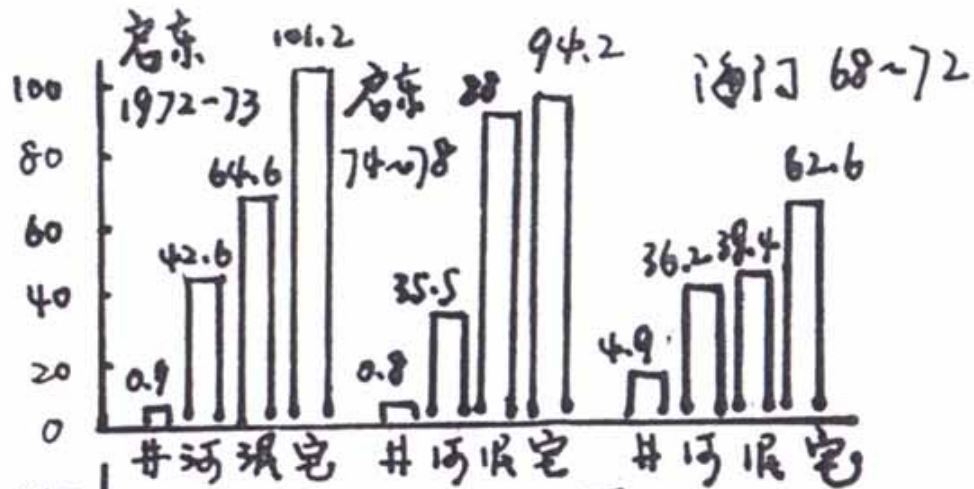 启东
1972-73
启东
74~78
海门 68~72
100
80
60
40
20
0
0.9
42.6
64.6
101.2
0.8
35.5
88
94.2
4.9
36.2
38.4
62.6
井 河 泯 宅
井 河 泯 宅
井 河 泯 宅